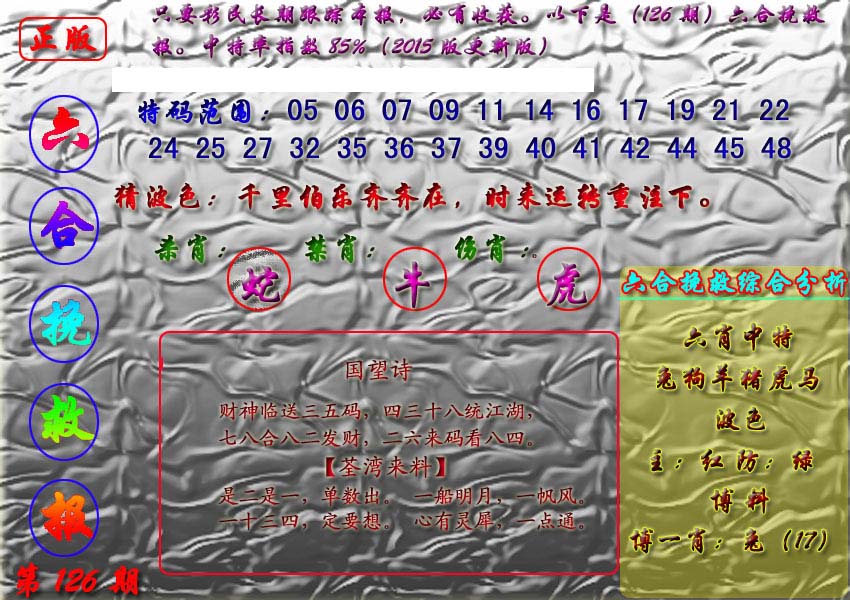 正版
只要彩民长期跟踪本报，必有收获。以下是（126期）六合挽救
报。中特率指数85%（2015版更新版）
六
合
挽
救
报
第126期
特码范围：05 06 07 09 11 14 16 17 19 21 22
24 25 27 32 35 36 37 39 40 41 42 44 45 48
猜波色：千里伯乐齐齐在，时来运转重注下。
杀肖：蛇 禁肖：牛 伤肖：虎。
国望诗
财神临送三五码，四三十八统江湖，
七八合八二发财，二六来码看八四。
【荃湾来料】
是二是一，单数出。 一船明月，一帆风。
一十三四，定要想。 心有灵犀，一点通。
六合挽救综合分析
六肖中特
兔狗羊猪虎马
波色
主：红防：绿
博料
博一肖：兔（17）